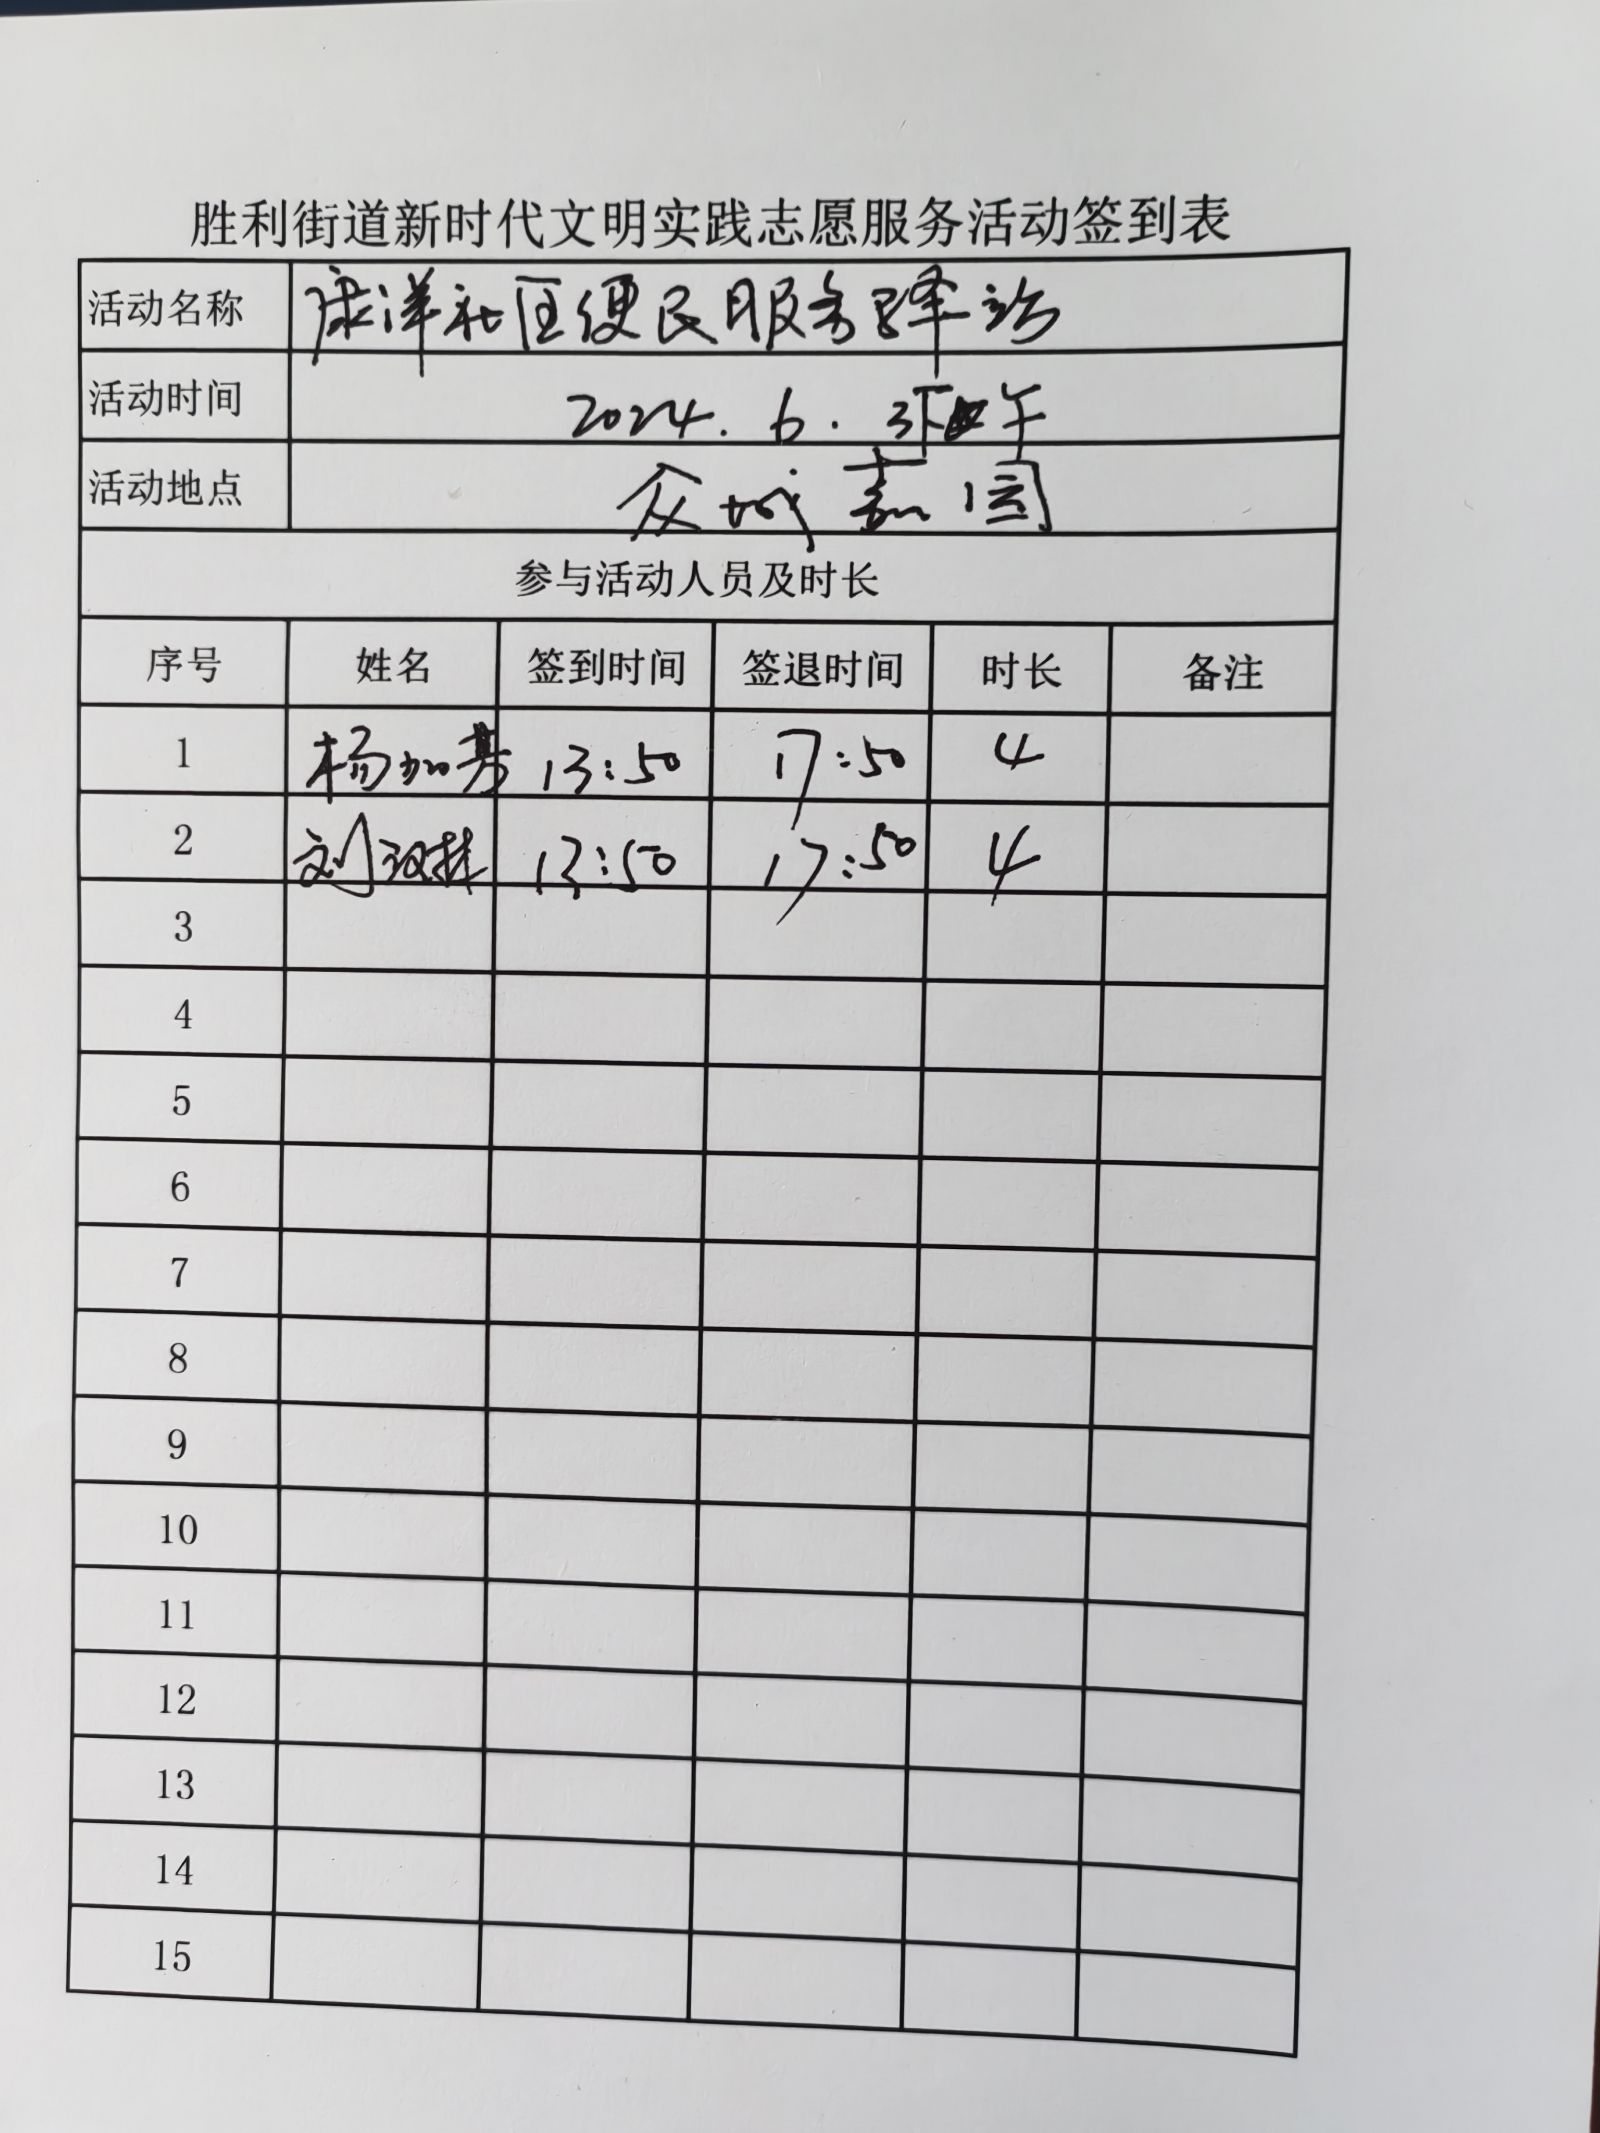 胜利街道新时代文明实践志愿服务活动签到表
活动名称 康洋社区便民服务驿站
活动时间 2024.6.3下午
活动地点 众城嘉园
参与活动人员及时长
序号 姓名 签到时间 签退时间 时长 备注
1 杨加 13:50 17:50 4
2 刘 13:50 17:50 4
3
4
5
6
7
8
9
10
11
12
13
14
15